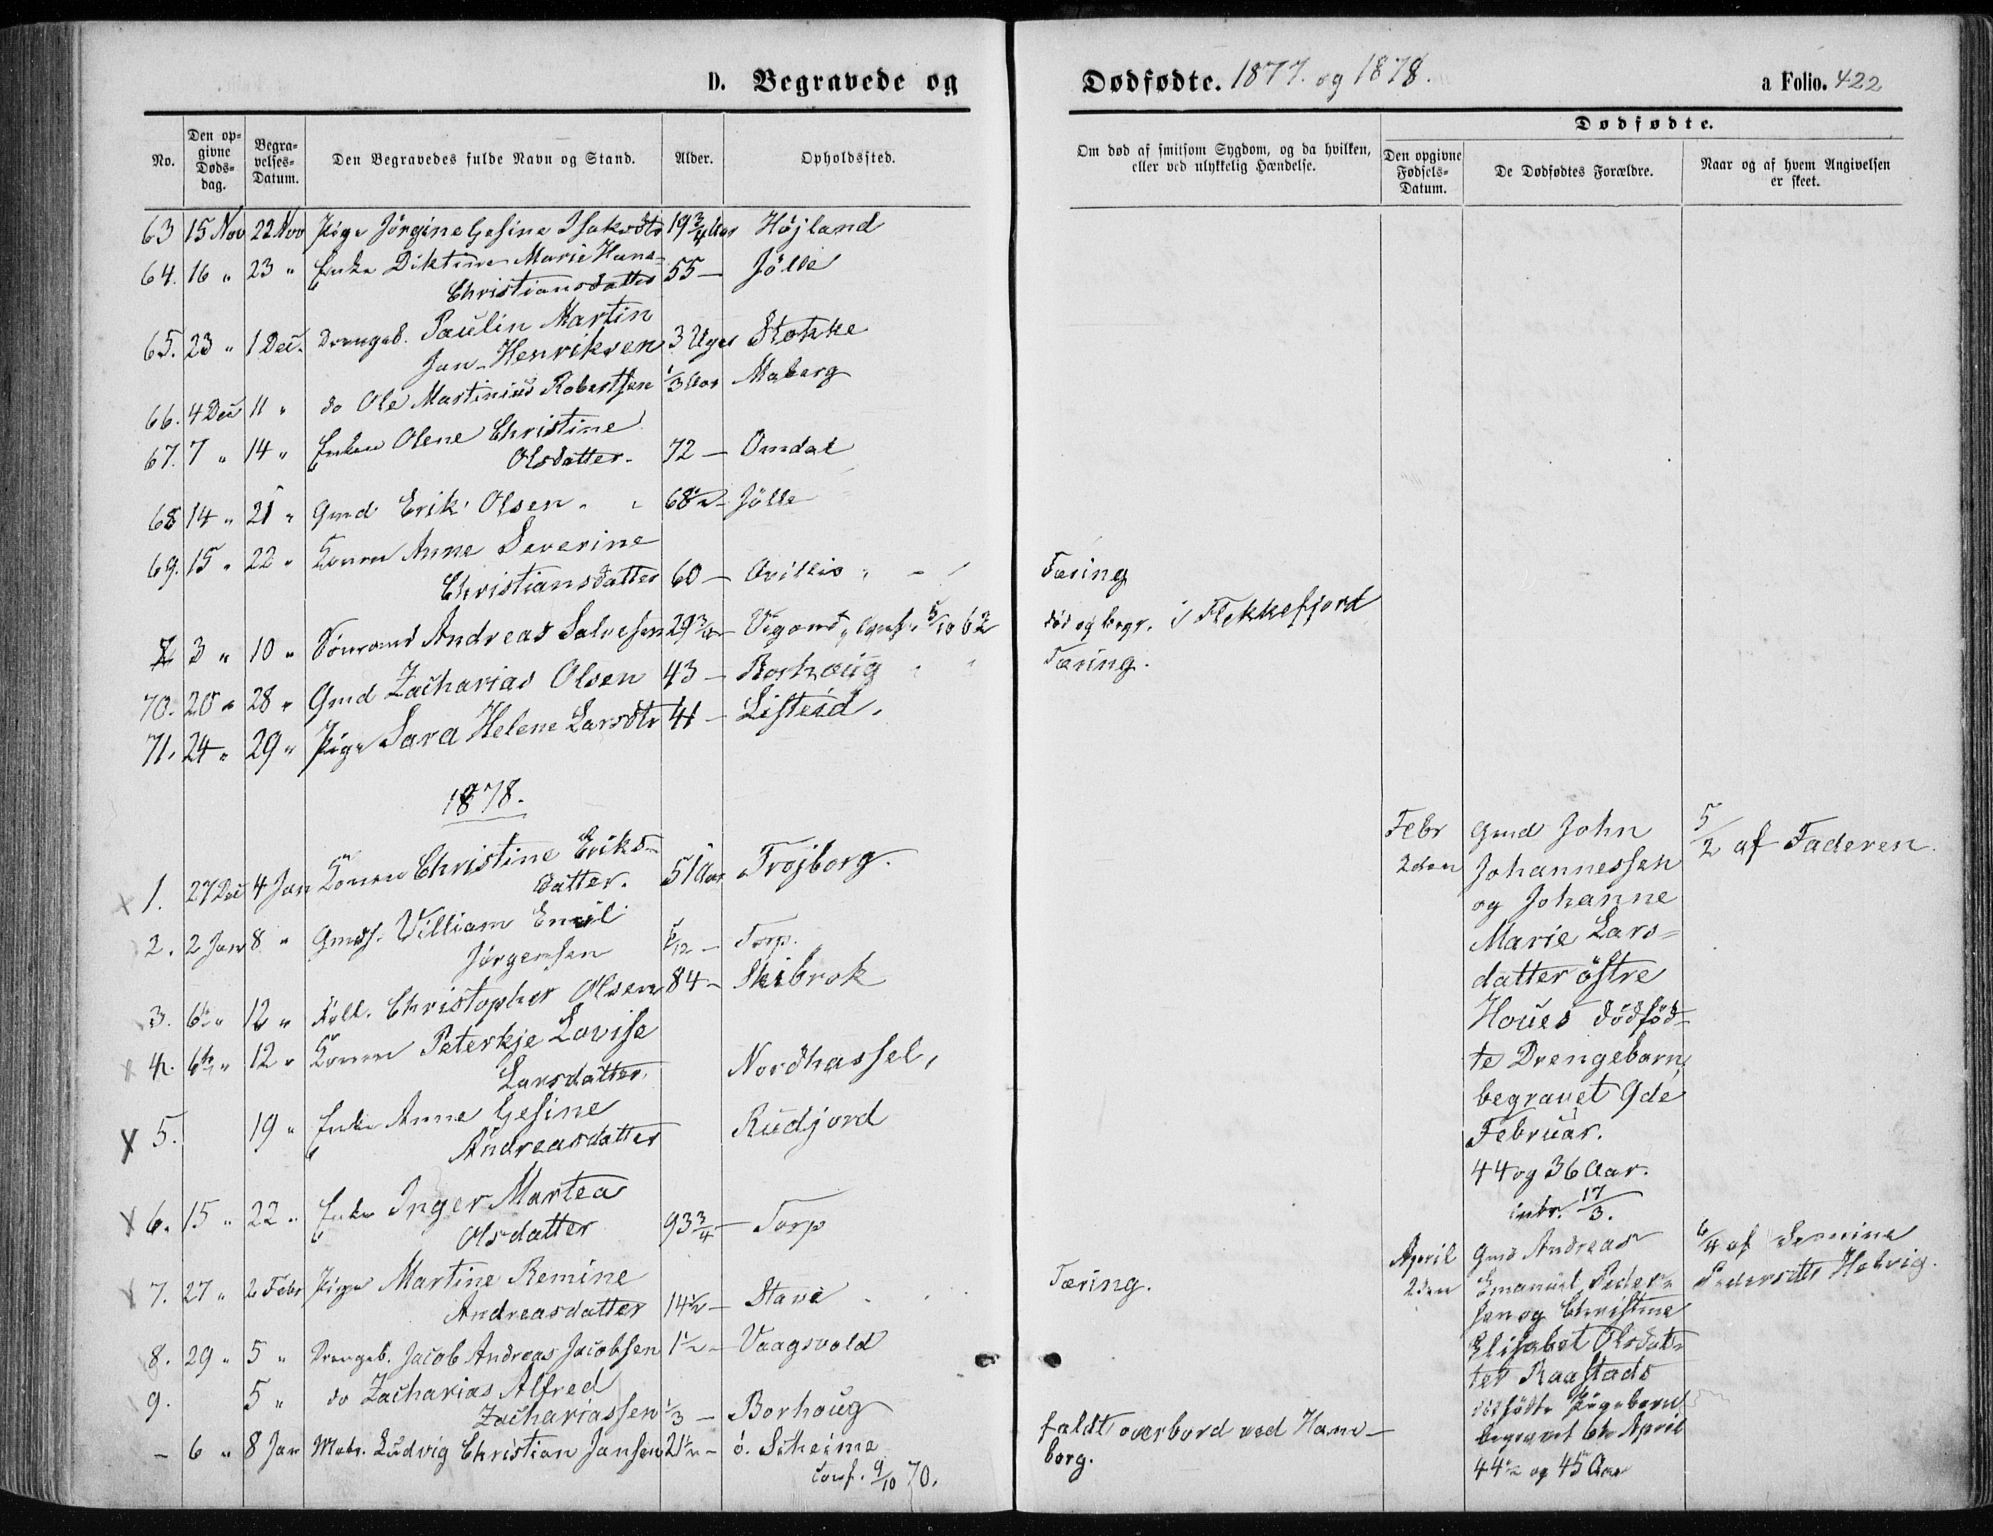 D. Begravede og
Dødfødte. 1877. og 1878.
a Folio. 422
No.
Den opgivne Dødsdag.
Begravelses-Datum.
Den Begravedes fulde Navn og Stand.
Alder.
Opholdssted.
Om død af smitsom Sygdom, og da hvilken,
eller ved ulykkelig Hændelse.
Dødfødte.
Den opgivne Fødsels-Datum.
De Dødfødtes Forældre.
Naar og af hvem Angivelsen
er skeet.
63 15 Nov 22 Nov Pige Jørgine Gesine Isaksdtr 19 3/4 Aar Højland
64. 16 " 23 " Enke Diktine Marie Hans-
Christiansdatter 55 — Jölle
65. 23 " 1 Dec. Drengeb. Paulin Martin
Jan-Henriksen 3 Uger Stokke
66. 4 Dec 11 " do Ole Martinius Robertsen 1/3 Aar Maberg
67. 7 " 14 " Enken Olene Christine
Olsdatter. 72 — Omdal
68 14 " 21 " Gmd Erik Olsen 68 1/2 — Jölle
69. 15 " 22 " Konen Anne Severine
Christiansdatter 60 — Tæring
3 " 10 " Andreas Salvesen 29 3/4 — Vigand, Conf. 5/10 62 død og begr. i Flekkefjord
70. 20 " 28 " Gmd Zacharias Olsen 43 — Borhaug Tæring.
71. 24 " 29 " Pige Sara Helene Larsdtr 41 — Listeid.
1878.
1. 27 Dec 4 Jan Konen Christine Eriks-
datter. 51 Aar Trojborg.
2. 2 Jan 8 " Gmds. Villiam Emil
Jørgensen 5/12 — Torp.
3. 6te " 12 " Føll. Christopher Olsen 84 — Skibrok
4. 6te " 12 " Konen Peterkje Lovise
Larsdatter. Nordhassel,
5. 19 " Enke Anne Gesine
Andreasdatter Rudjord
6. 15 " 22 " Enke Inger Martea
Olsdatter 93 3/4 — Torp
7. 27 " 2 Febr Pige Martine Remine
Andreasdatter 14 1/2 — Stave Tæring.
8. 29 " 5 " Drengeb. Jacob Andreas Jacobsen 1 1/2 — Vaagsvold
9. 5 " do Zacharias Alfred
Zachariassen 1/3 — Borhoug
— 6 " 8 Jan Matr. Ludvig Christian Jansen 21 1/2 — ö. Scheime
Conf. 9/10 70.
faldt overbord ved Ham-
borg.
Febr
2den
Gmd John
Johannessen
og Johanne
Marie Lars-
datter östre
Houes dödfød-
te Drengebarn
begravet 9de
Februar.
44 og 36 Aar.
inbr. 17/3.
5/2 af Faderen.
April
2den
Gmd Andreas
Emanuel Peder-
sen og Christine
Elisabet Olsdat-
ter Raastads
dødfødte Pigebarn
begravet 6te April
44 1/2 og 45 Aar
6/4 af
Pedersdtr Hebvig.